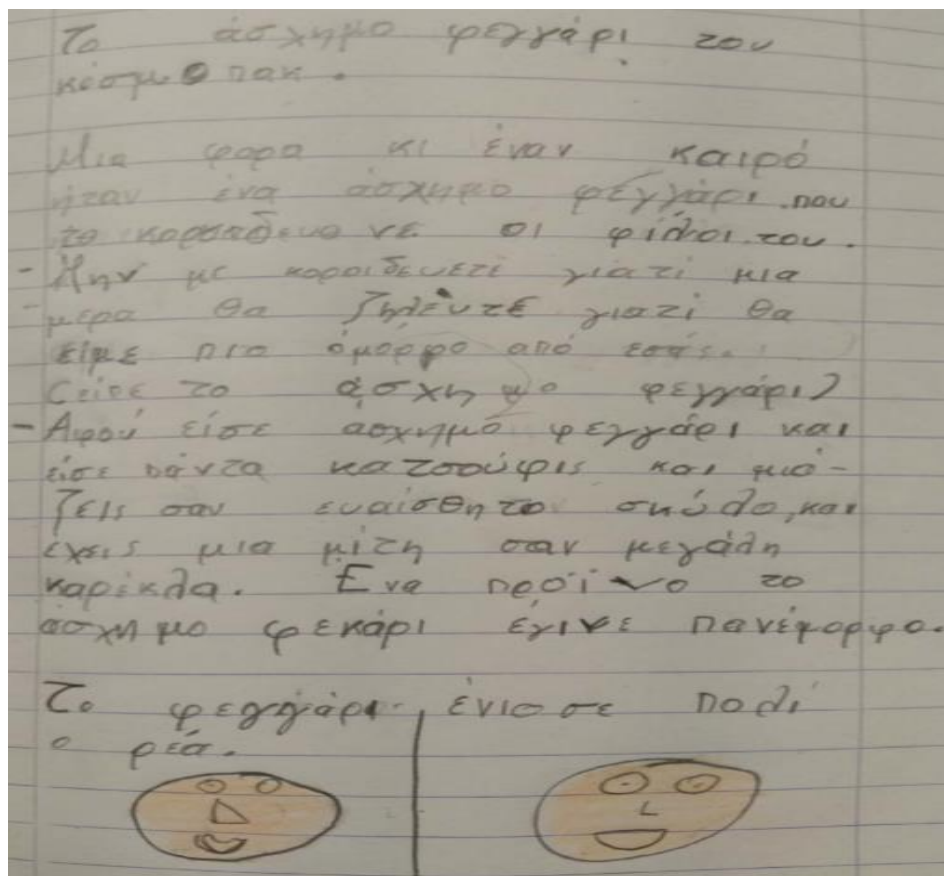 Το άσχημο φεγγάρι του
κόσμο πακ.
Μια φορα κι έναν καιρό
ήταν ένα άσχημο φεγγάρι που
το κοροιδευο νε οι φίλοι του.
- Μην με κοροιδευετί γιατί μια
μερα θα ζηλέυτε γιατί θα
είμε πιο όμορφο από εσάς.
(είπε το άσχημο φεγγάρι)
- Αφού είσε ασχημό φεγγάρι και
είσε πάντα κατσούφις και μιά-
ζεις σαν ευαίσθητο σκύλο, και
έχεις μια μίτη σαν μεγάλη
καρέκλα. Ενα προϊνο το
άσχημο φεκάρι έγινε πανέμορφο.
Το φεγγάρι ένιοσε πολί
ο ρεά.